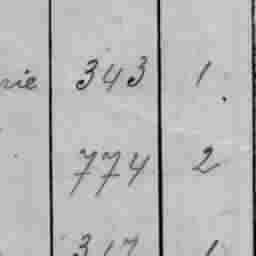 rie 343 1.
774 2
317 1